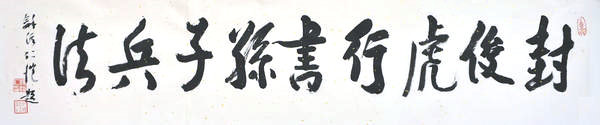 封俊虎行書孫子兵法